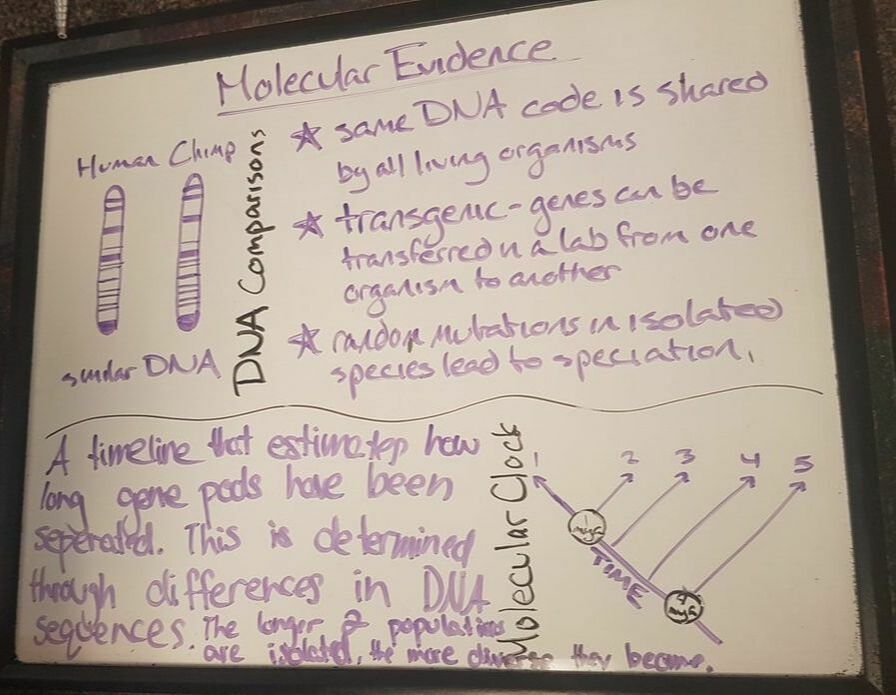 Molecular Evidence
Human Chimp
similar DNA
DNA Comparisons
☆ same DNA code is shared
by all living organisms
☆ transgenic - genes can be
transferred in a lab from one
organism to another
☆ random mutations in isolated
species lead to speciation.
A timeline that estimates how
long gene pools have been
seperated. This is determined
through differences in DNA
sequences. The longer 2 populations
are isolated, the more diverse they become.
Molecular Clock
1 2 3 4 5
mya
TIME
mya